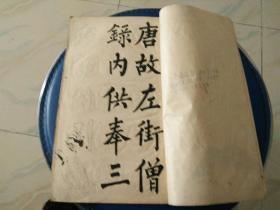 唐故左街僧
錄内供奉三